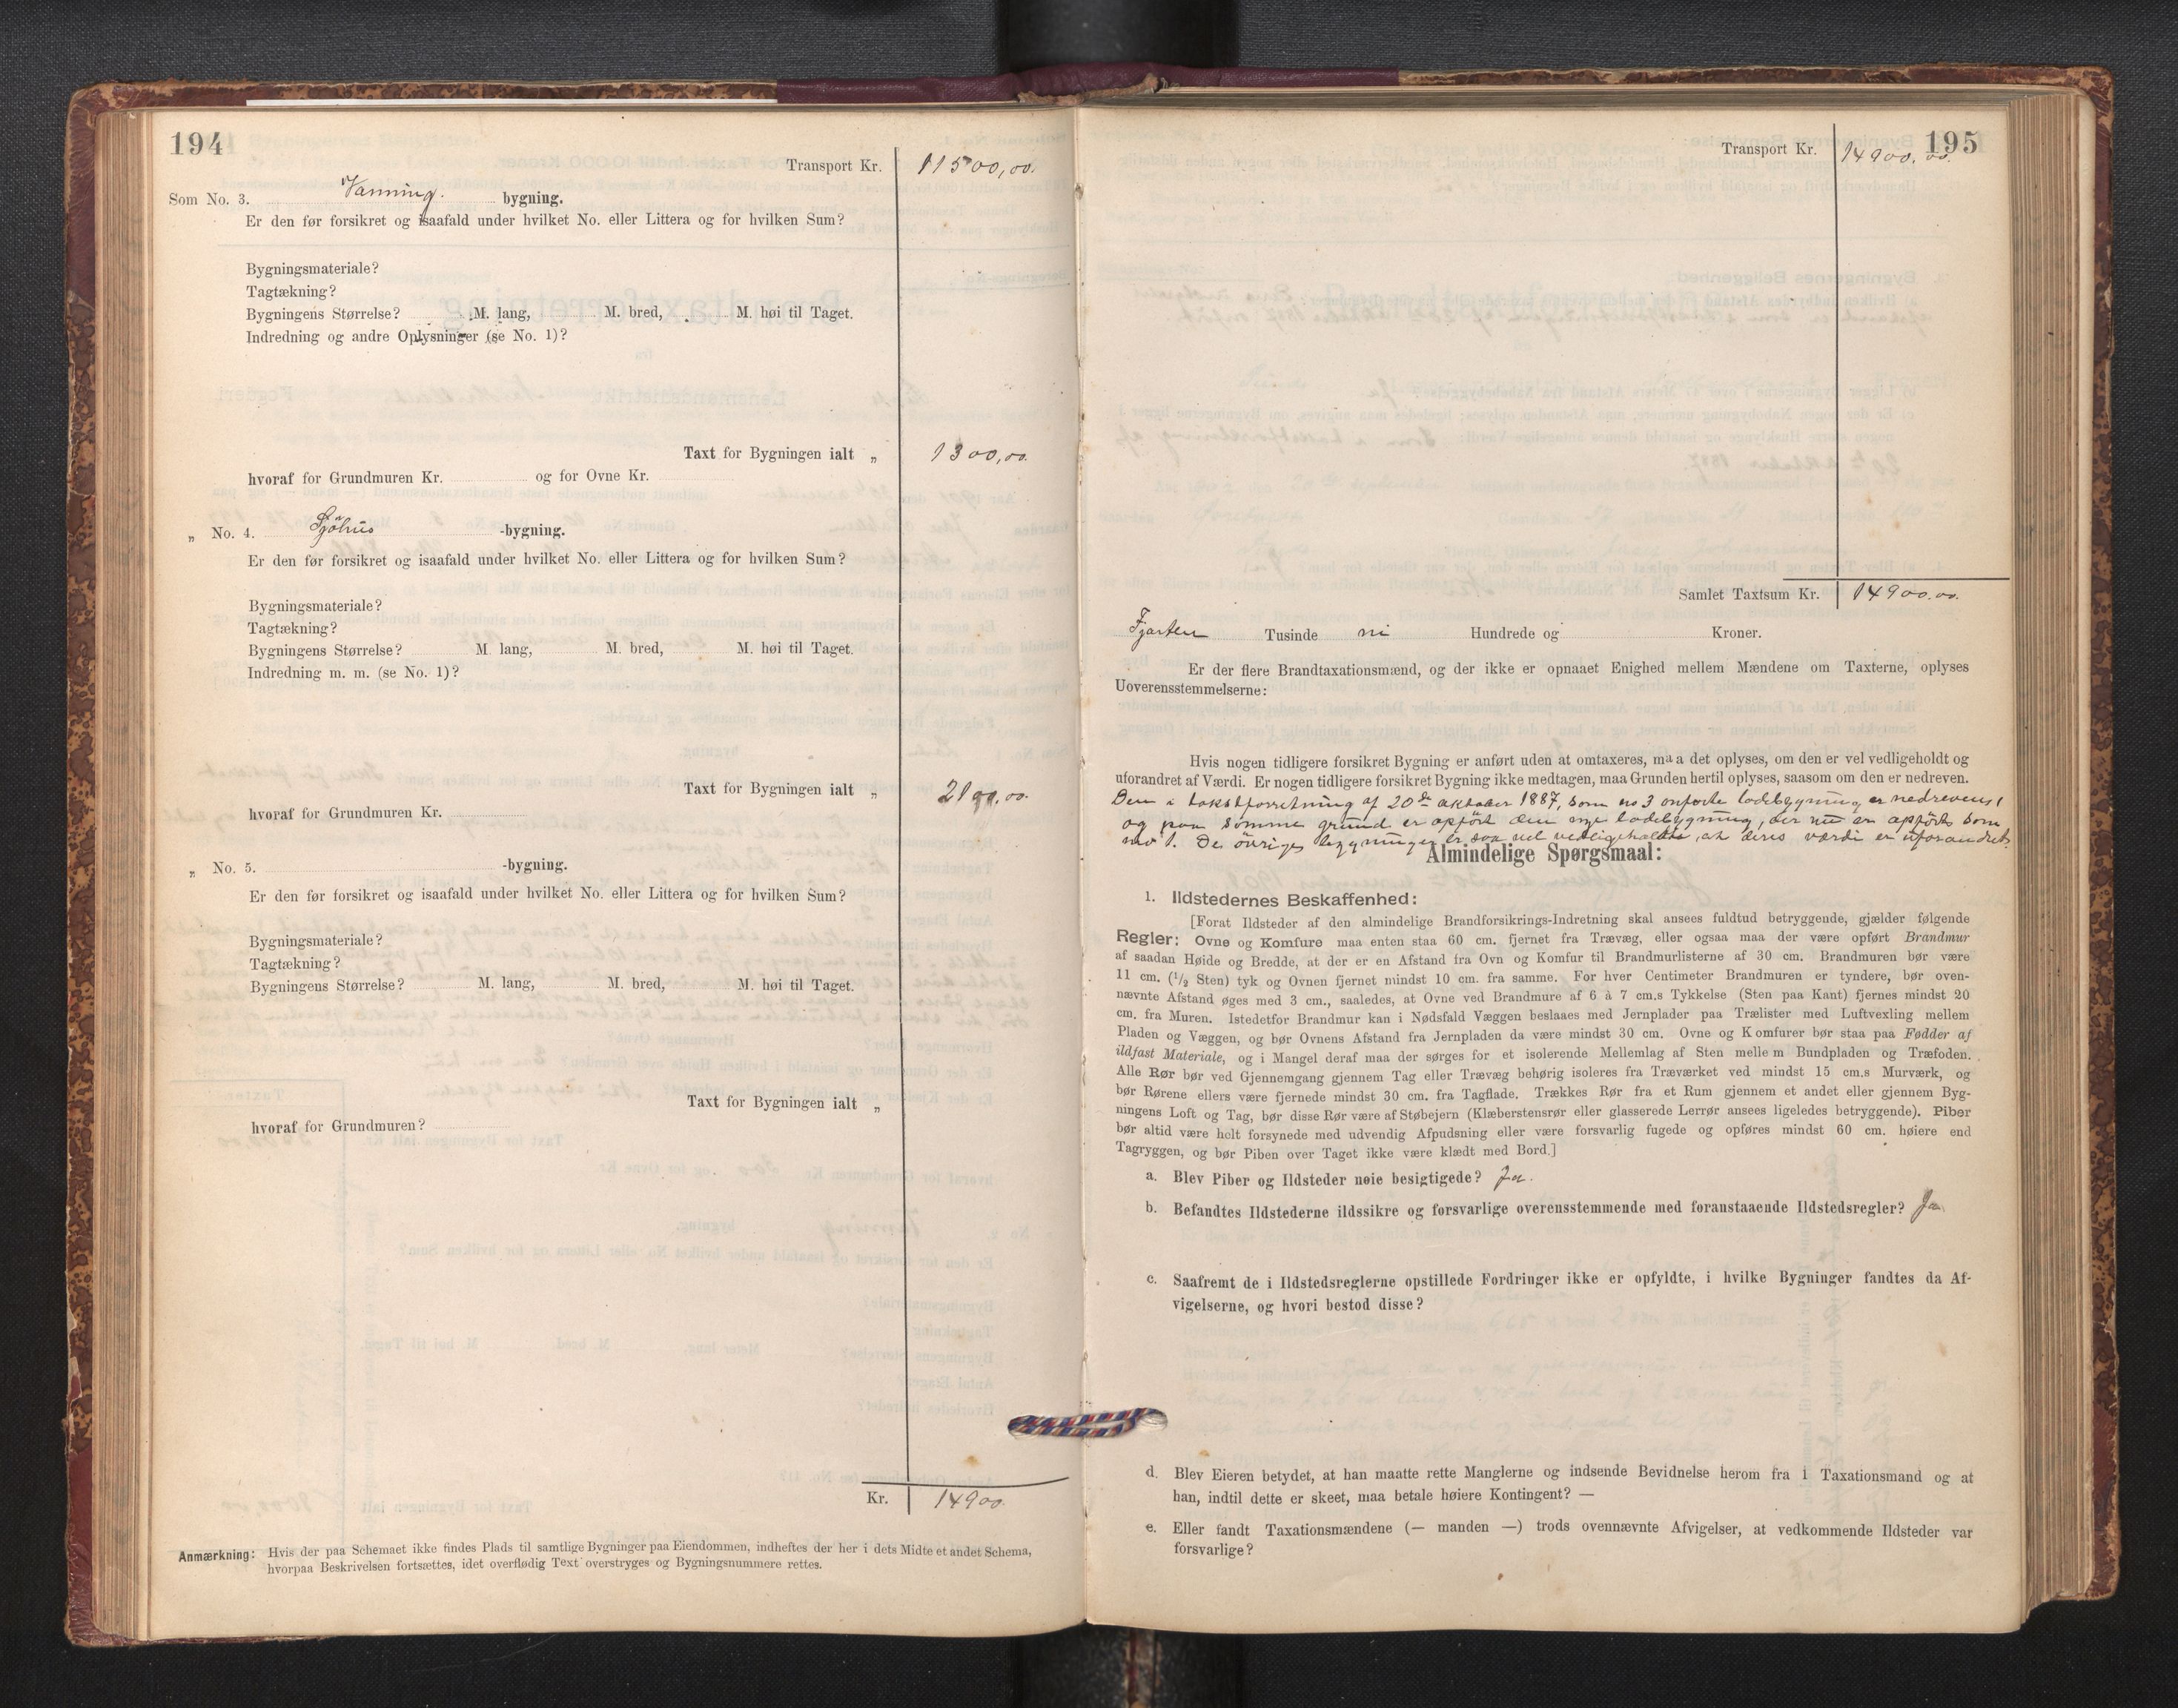 194
Transport Kr. 11500,00.
Som No. 3. Vanning. bygning.
Er den før forsikret og isaafald under hvilket No. eller Littera og for hvilken Sum?
Bygningsmateriale?
Tagtækning?
Bygningens Størrelse? M. lang, M. bred, M. høi til Taget.
Indredning og andre Oplysninger (se No. 1)?
Taxt for Bygningen ialt „ 1300,00.
hvoraf for Grundmuren Kr. og for Ovne Kr.
„ No. 4. Sjöhus -bygning.
Er den før forsikret og isaafald under hvilket No. eller Littera og for hvilken Sum?
Bygningsmateriale?
Tagtækning?
Bygningens Størrelse? M. lang, M. bred, M. høi til Taget.
Indredning m. m. (se No. 1)?
Taxt for Bygningen ialt „ 2100,00.
hvoraf for Grundmuren Kr.
„ No. 5. -bygning.
Er den før forsikret og isaafald under hvilket No. eller Littera og for hvilken Sum?
Bygningsmateriale?
Tagtækning?
Bygningens Størrelse? M. lang, M. bred, M. høi til Taget.
Taxt for Bygningen ialt „
hvoraf for Grundmuren?
Kr. 14900.
Anmærkning: Hvis der paa Schemaet ikke findes Plads til samtlige Bygninger paa Eiendommen, indheftes der her i dets Midte et andet Schema,
hvorpaa Beskrivelsen fortsættes, idet overflødig Text overstryges og Bygningsnummere rettes.
195
Transport Kr. 14900.00.
Samlet Taxtsum Kr. 14900.00.
Fjorten Tusinde ni Hundrede og Kroner.
Er der flere Brandtaxationsmænd, og der ikke er opnaaet Enighed mellem Mændene om Taxterne, oplyses
Uoverensstemmelserne:
Hvis nogen tidligere forsikret Bygning er anført uden at omtaxeres, maa det oplyses, om den er vel vedligeholdt og
uforandret af Værdi. Er nogen tidligere forsikret Bygning ikke medtagen, maa Grunden hertil oplyses, saasom om den er nedreven.
Den i takstforretning af 20de oktober 1887, som no 3 anførte ladebygning er nedreven,
og paa samme grund er opført den nye ladebygning, der nu er opført som
no 1. De övrige bygninger er saa vel vedligeholdte, at deres værdi er uforandret.
Almindelige Spørgsmaal:
1. Ildstedernes Beskaffenhed:
[Forat Ildsteder af den almindelige Brandforsikrings-Indretning skal ansees fuldtud betryggende, gjælder følgende
Regler: Ovne og Komfure maa enten staa 60 cm. fjernet fra Trævæg, eller ogsaa maa der være opført Brandmur
af saadan Høide og Bredde, at der er en Afstand fra Ovn og Komfur til Brandmurlisterne af 30 cm. Brandmuren bør være
11 cm. (1/2 Sten) tyk og Ovnen fjernet mindst 10 cm. fra samme. For hver Centimeter Brandmuren er tyndere, bør oven-
nævnte Afstand øges med 3 cm., saaledes, at Ovne ved Brandmure af 6 à 7 cm.s Tykkelse (Sten paa Kant) fjernes mindst 20
cm. fra Muren. Istedetfor Brandmur kan i Nødsfald Væggen beslaaes med Jernplader paa Trælister med Luftvexling mellem
Pladen og Væggen, og bør Ovnens Afstand fra Jernpladen da være mindst 30 cm. Ovne og Komfurer bør staa paa Fødder af
ildfast Materiale, og i Mangel deraf maa der sørges for et isolerende Mellemlag af Sten mellem Bundpladen og Træfoden.
Alle Rør bør ved Gjennemgang gjennem Tag eller Trævæg behørig isoleres fra Træværket ved mindst 15 cm.s Murværk, og
bør Rørene ellers være fjernede mindst 30 cm. fra Tagflade. Trækkes Rør fra et Rum gjennem et andet eller gjennem Byg-
ningens Loft og Tag, bør disse Rør være af Støbejern (Klæberstensrør eller glasserede Lerrør ansees ligeledes betryggende). Piber
bør altid være helt forsynede med udvendig Afpudsning eller være forsvarlig fugede og opføres mindst 60 cm. høiere end
Tagryggen, og bør Piben over Taget ikke være klædt med Bord.]
a. Blev Piber og Ildsteder nøie besigtigede? Ja.
b. Befandtes Ildstederne ildssikre og forsvarlige overensstemmende med foranstaaende Ildstedsregler? Ja
c. Saafremt de i Ildstedsreglerne opstillede Fordringer ikke er opfyldte, i hvilke Bygninger fandtes da Af-
vigelserne, og hvori bestod disse?
d. Blev Eieren betydet, at han maatte rette Manglerne og indsende Bevidnelse herom fra 1 Taxationsmand og at
han, indtil dette er skeet, maa betale høiere Kontingent? —
e. Eller fandt Taxationsmændene (— manden —) trods ovennævnte Afvigelser, at vedkommende Ildsteder var
forsvarlige?